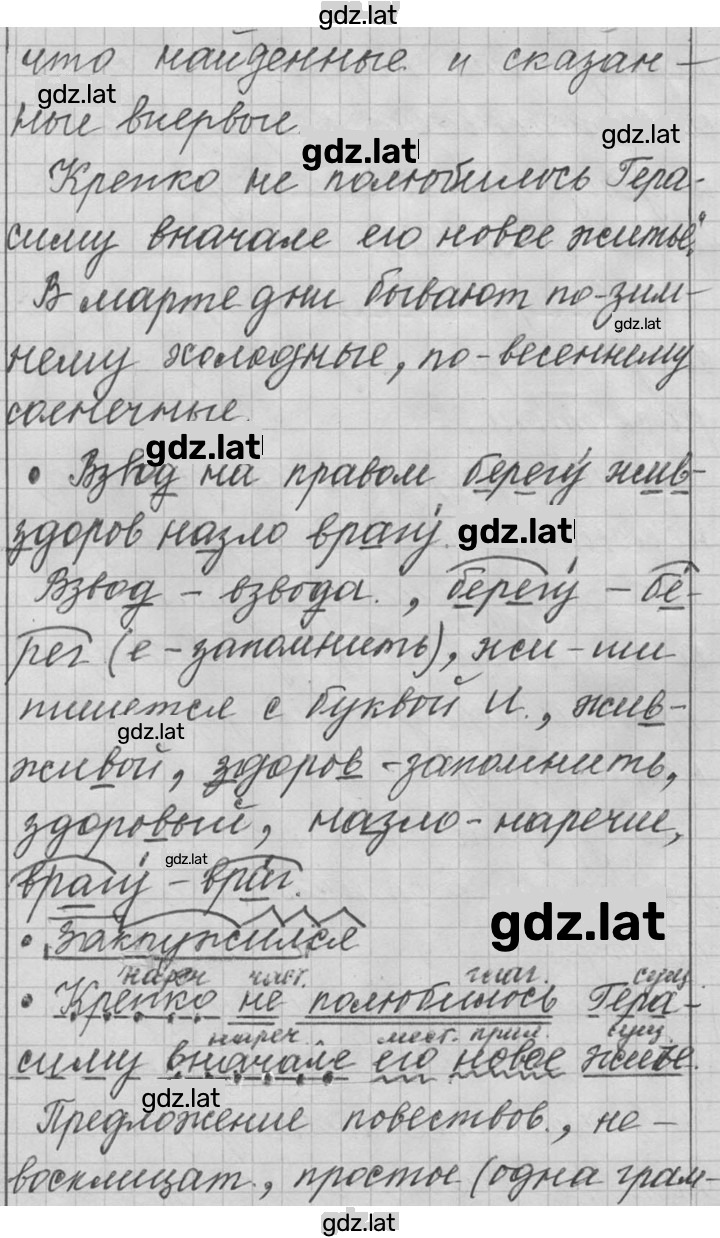 gdz.lat
что найденные и сказан-
gdz.lat
ные впервые.
gdz.lat
gdz.lat
Крепко не полюбилось Гера-
симу вначале его новое житьё."
В марте дни бывают по-зим-
gdz.lat
нему холодные, по-весеннему
солнечные.
gdz.lat
• Взвод на правом берегу́ жив-
здоров назло врагу́.
gdz.lat
Взвод - взвода., берегу́ - бе́-
рег (е - запомнить), жи-ши
пишется с буквой И., жив-
gdz.lat
живой, здоров - запомнить,
здоровый, назло - наречие,
gdz.lat
врагу́ - вра́г.
gdz.lat
• Закружился
нареч част. глаг. сущ.
• Крепко не полюбилось Гера-
нареч мест. прил. сущ.
симу вначале его новое житье.
gdz.lat
Предложение повествов., не-
восклицат., простое (одна грам-
gdz.lat